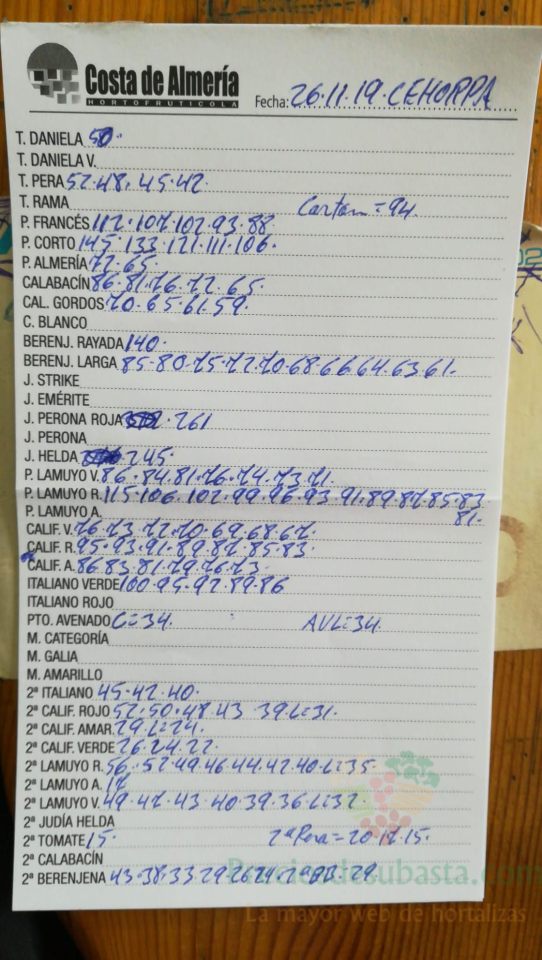 Costa de Almería
HORTOFRUTICOLA
Fecha: 26.11.19. CEHORPA
T. DANIELA 50.
T. DANIELA V.
T. PERA 52.48.45.42.
T. RAMA Cartom = 94.
P. FRANCÉS 112.107.102.93.88
P. CORTO 145.133.121.111.106.
P. ALMERÍA 72.65.
CALABACÍN 86.81.76.72.65.
CAL. GORDOS 70.65.61.59
C. BLANCO
BERENJ. RAYADA 140.
BERENJ. LARGA 85.80.75.72.70.68.66.64.63.61.
J. STRIKE
J. EMÉRITE
J. PERONA ROJA 261
J. PERONA
J. HELDA 245.
P. LAMUYO V. 86.84.81.76.74.73.71.
P. LAMUYO R. 115.106.102.99.96.93.91.89.87.85.83
81.
P. LAMUYO A.
CALIF. V. 76.73.72.70.69.68.67.
CALIF. R. 95.93.91.89.87.85.83.
CALIF. A. 86.83.81.79.76.73.
ITALIANO VERDE 100.95.92.89.86
ITALIANO ROJO
PTO. AVENADO C=34. AVL=34.
M. CATEGORÍA
M. GALIA
M. AMARILLO
2ª ITALIANO 45.42.40.
2ª CALIF. ROJO 52.50.48.43 39.L=31.
2ª CALIF. AMAR. 29.L=24.
2ª CALIF. VERDE 26.24.22.
2ª LAMUYO R. 56.52.49.46.44.42.40.L=35.
2ª LAMUYO A.
2ª LAMUYO V. 49.47.43.40.39.36.L=32.
2ª JUDÍA HELDA
2ª TOMATE 15. 2ª Pera = 20.17.15.
2ª CALABACÍN
2ª BERENJENA 43.38.33.29.26.24.
Preciosdesubasta.com
La mayor web de hortalizas